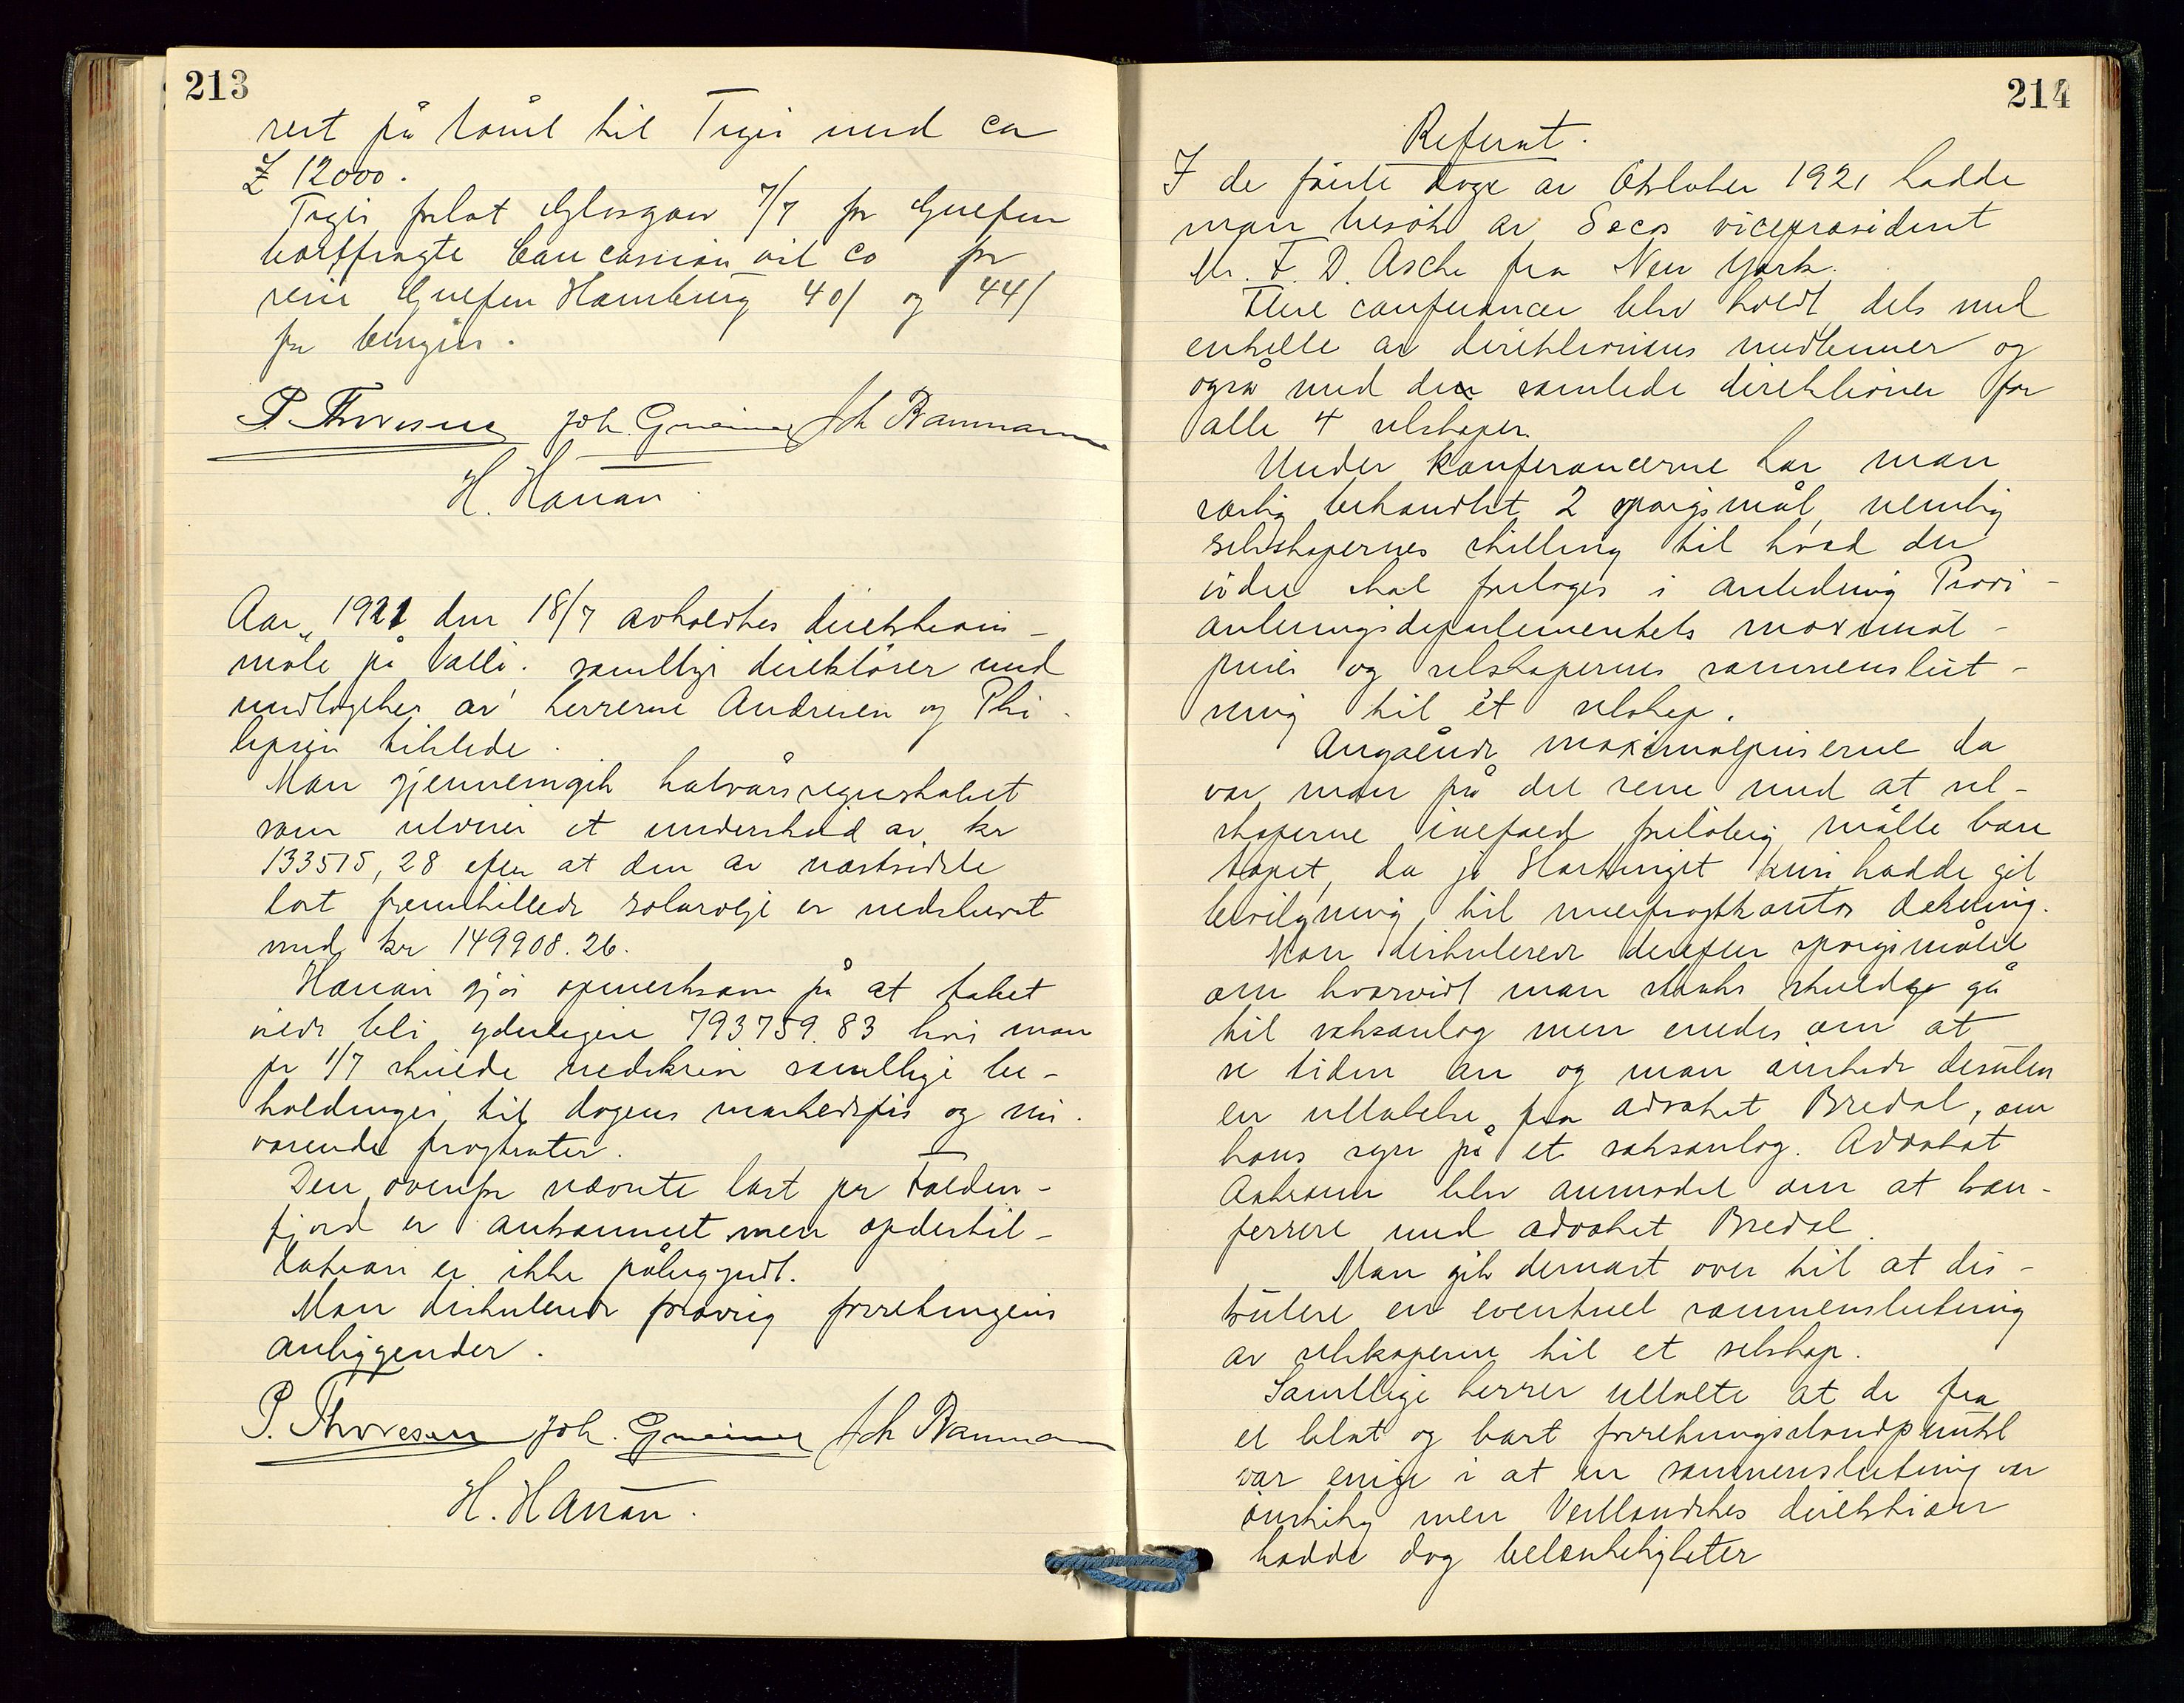 213
rert på tömt til Tiger med ca
£ 12000.
Tiger forlot Glasgow 7/7 for Guefen
bortfragte Caucasian oil Co for
reise Guefen Hamburg 40/ og 44/
for bengin.
P. Thoresen Joh. Greiner Joh Baumann
H. Hansen
Aar 1921 den 18/7 avholdtes direktions-
møte på Valle. samtlige direktører med
undtagelse av herrerne Andresen og Phi-
lipsen tilstede.
Man gjennemgik halvårsregnskabet
som utviser et underskud av kr
133515,28 efter at den av næstsidste
last fremstillede solarolje er nedskrevet
med kr 149908.26.
Hansen gjør opmerksom på at tabet
vilde bli yderligere 793759.83 hvis man
pr 1/7 skulde nedskrive samtlige be-
holdninger til dagens markedspris og nu-
værende fragtrater.
Den ovenfor nævnte last pr Folden-
fjord er ankommet men opdestil-
lation er ikke påbegyndt.
Man diskuterede forøvrig forretningens
anliggender.
P. Thoresen Joh. Greiner Joh Baumann
H. Hansen.
214
Referat.
I de første dage av Oktober 1921 hadde
man besøk av Secos vicepræsident
Mr. F. D. Asche fra New York.
Flere conferancer blev holdt dels med
enkelte av direktionens medlemmer og
også med den samlede direktioner for
alle 4 selskaper.
Under konferancerne har man
særlig behandlet 2 spørgsmål, nemlig
selskapernes stilling til hvad der
videre skal foretages i anledning Provi-
anteringsdepartementets maximal-
priser og selskapernes sammenslut-
ning til èt selskap.
Angående maximalpriserne da
var man på det rene med at sel-
skaperne ialfald foreløbig måtte bære
tapet, da jo Stortinget kun hadde git
bevilgning til merfragtkontos dækning.
Man diskuterede derefter spørgsmålet
om hvorvidt man straks skulde gå
til saksanlæg men enedes om at
se tiden an og man ønskede desuten
en uttalelse fra advokat Bredal, om
hans syn på et saksanlæg. Advokat
blev anmodet om at kon-
ferrere med advokat Bredal.
Man gik dernæst over til at dis-
kutere en eventuel sammenslutning
av selskaperne til et selskap.
Samtlige herrer uttalte at de fra
et blot og bart forretningsstandpunkt
var enige i at en sammenslutning var
ønskelig men Vestlandskes direktion
hadde dog betænkeligheter